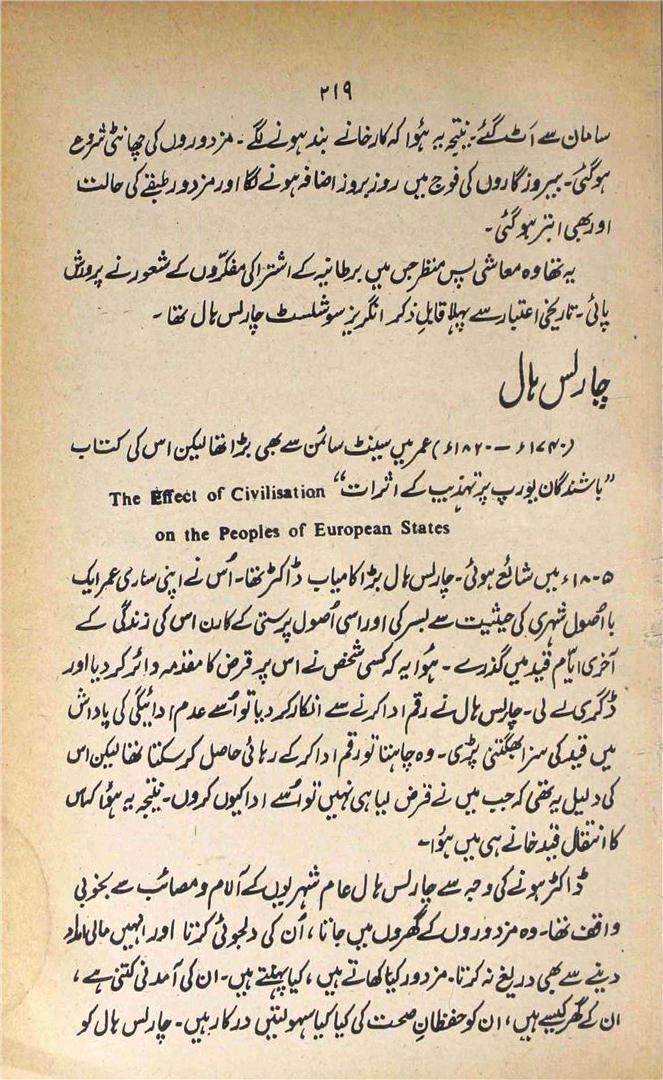 ۲۱۹
سامان سے اَٹ گئے۔ نتیجہ یہ ہؤا کہ کارخانے بند ہونے لگے۔ مزدوروں کی چھانٹی شروع
ہوگئی۔ بیروزگاروں کی فوج میں روز بروز اضافہ ہونے لگا اور مزدور طبقے کی حالت
اور بھی ابتر ہوگئی۔
یہ تھا وہ معاشی پس منظر جس میں برطانیہ کے اشتراکی مفکّروں کے شعور نے پرورش
پائی۔ تاریخی اعتبار سے پہلا قابلِ ذکر انگریز سوشلسٹ چارلس ہال تھا۔
چارلس ہال
(۱۷۴۰ء – ۱۸۲۰ء) عمر میں سینٹ سائمن سے بھی بڑا تھا لیکن اس کی کتاب
”باشندگان یورپ پر تہذیب کے اثرات“ The Effect of Civilisation
on the Peoples of European States
۱۸۰۵ء میں شائع ہوئی۔ چارلس ہال بڑا کامیاب ڈاکٹر تھا۔ اُس نے اپنی ساری عمر ایک
بااصُول شہری کی حیثیت سے بسر کی اور اسی اُصول پرستی کے کارن اس کی زندگی کے
آخری ایّام قید میں گذرے۔ ہُوا یہ کہ کسی شخص نے اس پر قرض کا مقدمہ دائر کر دیا اور
ڈگری لے لی۔ چارلس ہال نے رقم ادا کرنے سے انکار کر دیا تو اُسے عدم ادائیگی کی پاداش
میں قید کی سزا بھگتنی پڑی۔ وہ چاہتا تو رقم ادا کر کے رہائی حاصل کر سکتا تھا لیکن اس
کی دلیل یہ تھی کہ جب میں نے قرض لیا ہی نہیں تو اُسے ادا کیوں کروں۔ نتیجہ یہ ہؤا کہ اس
کا انتقال قید خانے ہی میں ہؤا۔
ڈاکٹر ہونے کی وجہ سے چارلس ہال عام شہریوں کے آلام و مصائب سے بخوبی
واقف تھا۔ وہ مزدوروں کے گھروں میں جاتا، اُن کی دلجوئی کرتا اور انہیں مالی امداد
دینے سے بھی دریغ نہ کرتا۔ مزدور کیا کھاتے ہیں، کیا پہنتے ہیں۔ ان کی آمدنی کتنی ہے،
ان کے گھر کیسے ہیں، ان کو حفظانِ صحت کی کیا کیا سہولتیں درکار ہیں۔ چارلس ہال کو